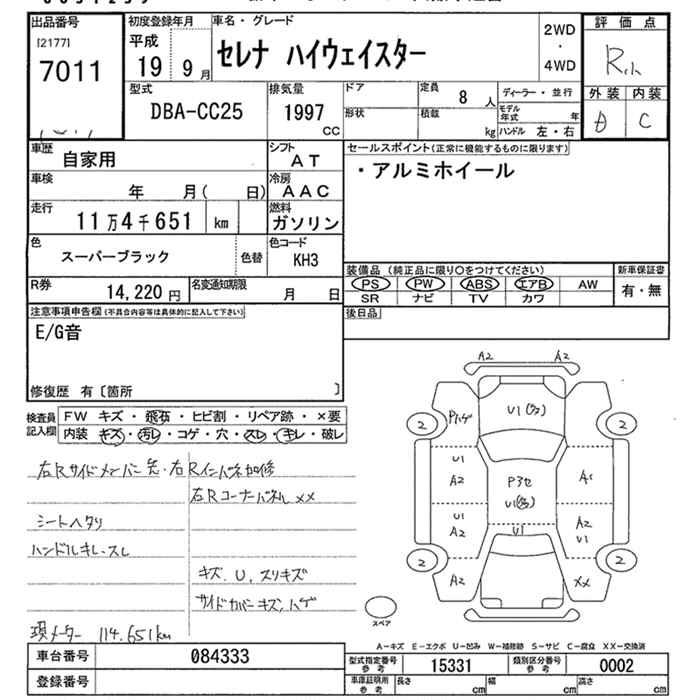 出品番号 初度登録年月 車名・グレード 2WD・4WD 評価点
[2177] 平成
7011 19 9月 セレナ ハイウェイスター R小
型式 排気量 ドア 定員 8人 ディーラー・並行 外装 内装
DBA-CC25 1997 CC 形状 積載 kg モデル年式 年 D C
ハンドル 左・右
車歴 自家用 シフト AT セールスポイント(正常に機能するものに限ります)
車検 年 月( 日) 冷房 AAC ・アルミホイール
走行 11万4千651 km 燃料 ガソリン
色 スーパーブラック 色替 色コード KH3
装備品 (純正品に限り○をつけてください) 新車保証書
PS PW ABS エアB AW 有・無
SR ナビ TV カワ
R券 14,220円 名変通知期限 月 日
後日品
注意事項申告欄(不具合内容等は具体的に記入して下さい)
E/G音
修復歴 有〔箇所 〕
検査員記入欄 FW キズ・飛石・ヒビ割・リペア跡・×要
内装 キズ・汚レ・コゲ・穴・スレ・キレ・破レ
右Rサイドメンバー先・右Rインパネ加修
右Rコーナーパネル ××
シートヘタリ
ハンドルキレ・スレ
キズ、U、スリキズ
サイドカバーキズ、ハゲ
現メーター 114,651km
A2 A2
2 Pハゲ U1 2
U1
A2 Pヨセ A1
U1
U1 A2 U1 A2 U1
2 2
A2 XX
スペア
A-キズ E-エクボ U-凹み W-補修跡 S-サビ C-腐食 XX-交換済
車台番号 084333 型式指定番号 参考 15331 類別区分番号 参考 0002
登録番号 車庫証明用 参考 長さ cm 幅 cm 高さ cm